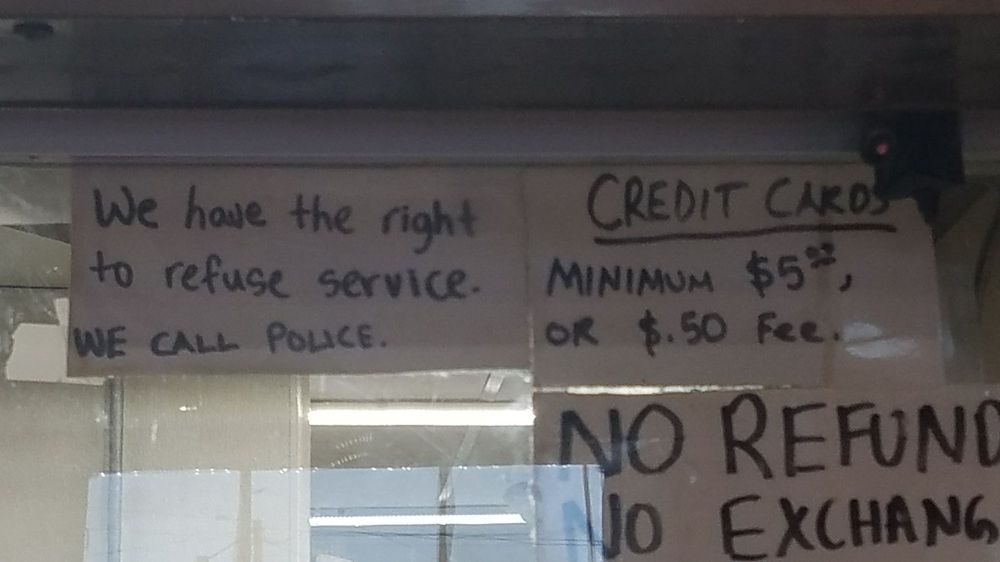 We have the right
to refuse service.
WE CALL POLICE.
CREDIT CARDS
MINIMUM $5.00,
OR $.50 Fee.
NO REFUND
NO EXCHANG